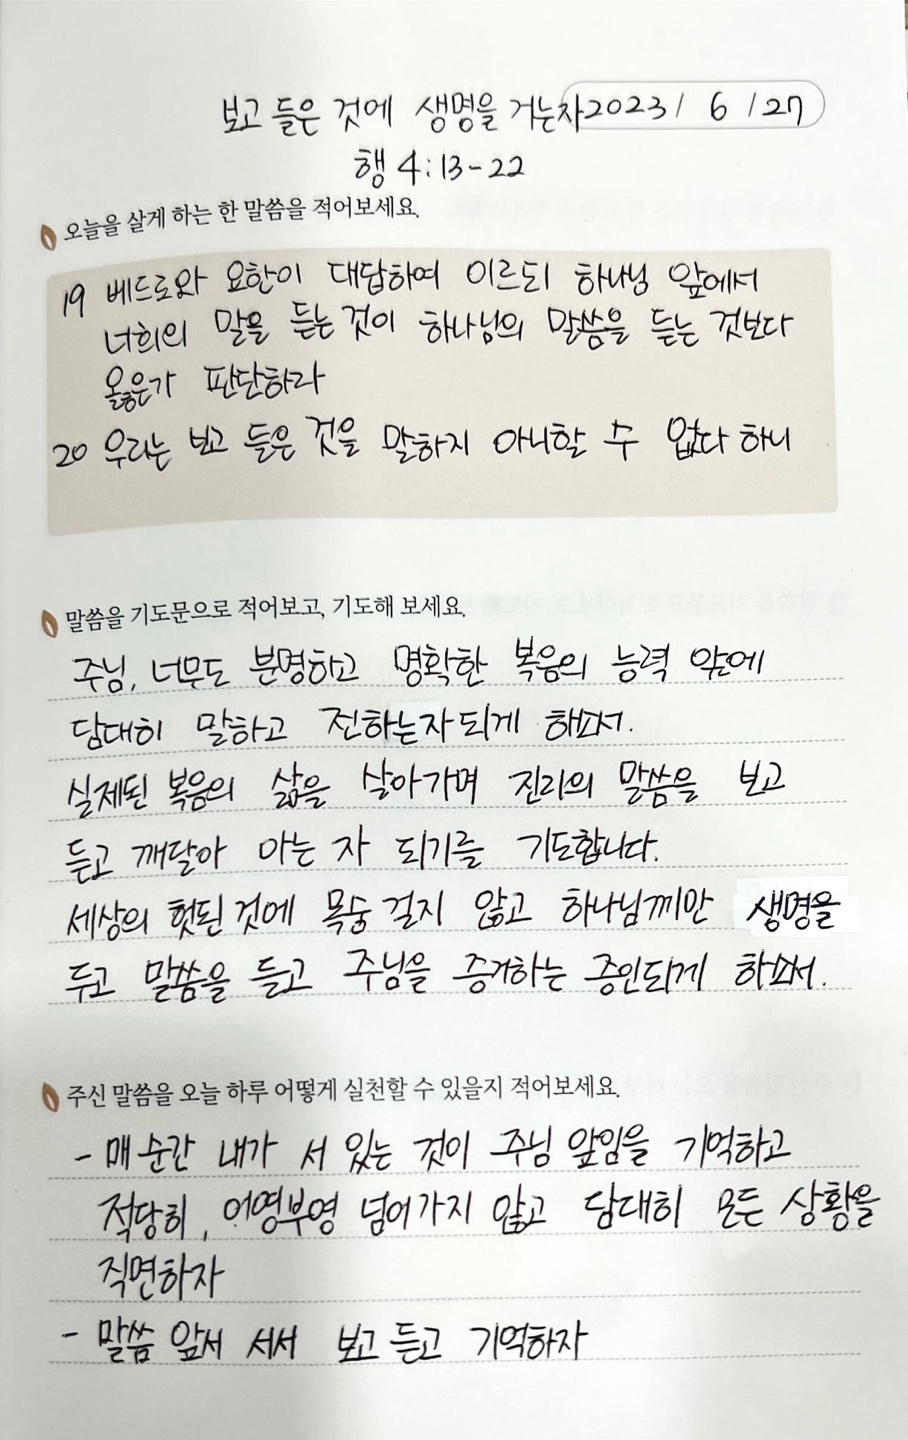 보고 들은 것에 생명을 거는자 2023 / 6 / 27
행 4:13-22
오늘을 살게 하는 한 말씀을 적어보세요.
19 베드로와 요한이 대답하여 이르되 하나님 앞에서
너희의 말을 듣는 것이 하나님의 말씀을 듣는 것보다
옳은가 판단하라
20 우리는 보고 들은 것을 말하지 아니할 수 없다 하니
말씀을 기도문으로 적어보고, 기도해 보세요.
주님, 너무도 분명하고 명확한 복음의 능력 앞에
담대히 말하고 전하는자 되게 하소서.
실제된 복음의 삶을 살아가며 진리의 말씀을 보고
듣고 깨달아 아는 자 되기를 기도합니다.
세상의 헛된 것에 목숨 걸지 않고 하나님께만 생명을
두고 말씀을 듣고 주님을 증거하는 증인되게 하소서.
주신 말씀을 오늘 하루 어떻게 실천할 수 있을지 적어보세요.
- 매 순간 내가 서 있는 것이 주님 앞임을 기억하고
적당히, 어영부영 넘어가지 않고 담대히 모든 상황을
직면하자
- 말씀 앞서 서서 보고 듣고 기억하자